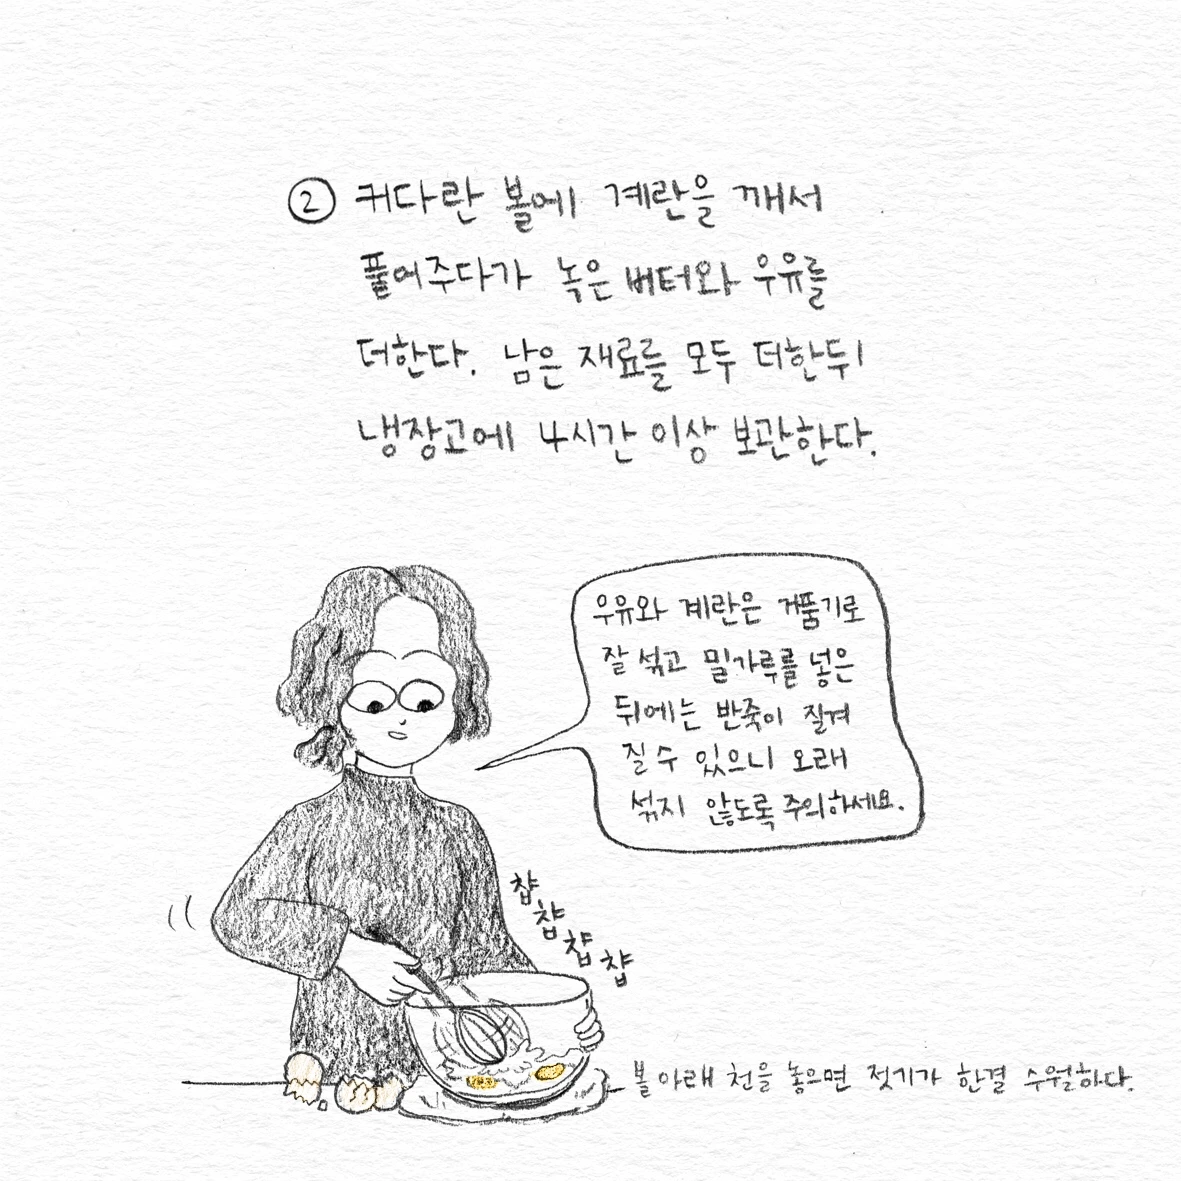 ② 커다란 볼에 계란을 깨서
풀어주다가 녹은 버터와 우유를
더한다. 남은 재료를 모두 더한뒤
냉장고에 4시간 이상 보관한다.
우유와 계란은 거품기로
잘 섞고 밀가루를 넣은
뒤에는 반죽이 질겨
질 수 있으니 오래
섞지 않도록 주의하세요.
챱
챱
챱
챱
볼 아래 천을 놓으면 젓기가 한결 수월하다.